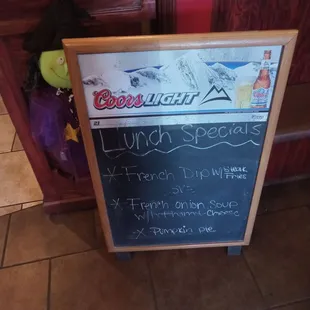 Coors LIGHT
Lunch Specials
* French Dip w/ Steak Fries
or
* French Onion Soup
w/ Ham Cheese
* Pumpkin pie